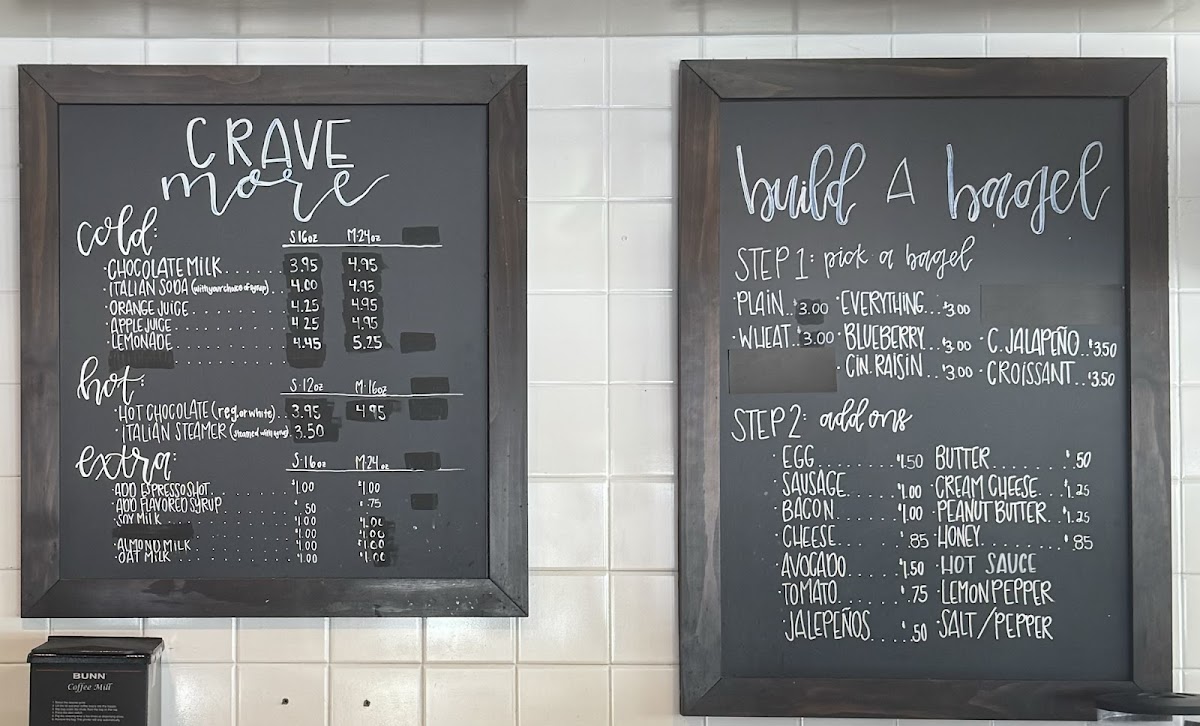 CRAVE
more
cold:
S 16oz M 24oz
· CHOCOLATE MILK........ 3.95 4.95
· ITALIAN SODA (with your choice of syrup). 4.00 4.95
· ORANGE JUICE........ 4.25 4.95
· APPLE JUICE........ 4.25 4.95
· LEMONADE........ 4.45 5.25
hot:
S·12oz M·16oz
· HOT CHOCOLATE (reg. or white)... 3.95 4.95
· ITALIAN STEAMER (steamed with syrup). 3.50
extra:
S·16oz M·24oz
· ADD ESPRESSO SHOT........ $1.00 $1.00
· ADD FLAVORED SYRUP........ $.50 $.75
· SOY MILK........ $1.00 $1.00
· ALMOND MILK........ $1.00 $1.00
· OAT MILK........ $1.00 $1.00
BUNN
Coffee Mill
build A bagel
STEP 1: pick a bagel
· PLAIN..$3.00 · EVERYTHING...$3.00
· WHEAT..$3.00 · BLUEBERRY...$3.00 · C. JALAPEÑO..$3.50
· CIN. RAISIN...$3.00 · CROISSANT...$3.50
STEP 2: add ons
· EGG........$1.50 · BUTTER........$.50
· SAUSAGE......$1.00 · CREAM CHEESE...$1.25
· BACON.......$1.00 · PEANUT BUTTER..$1.25
· CHEESE.......$.85 · HONEY........$.85
· AVOCADO.....$1.50 · HOT SAUCE
· TOMATO.......$.75 · LEMON PEPPER
· JALEPEÑOS....$.50 · SALT/PEPPER